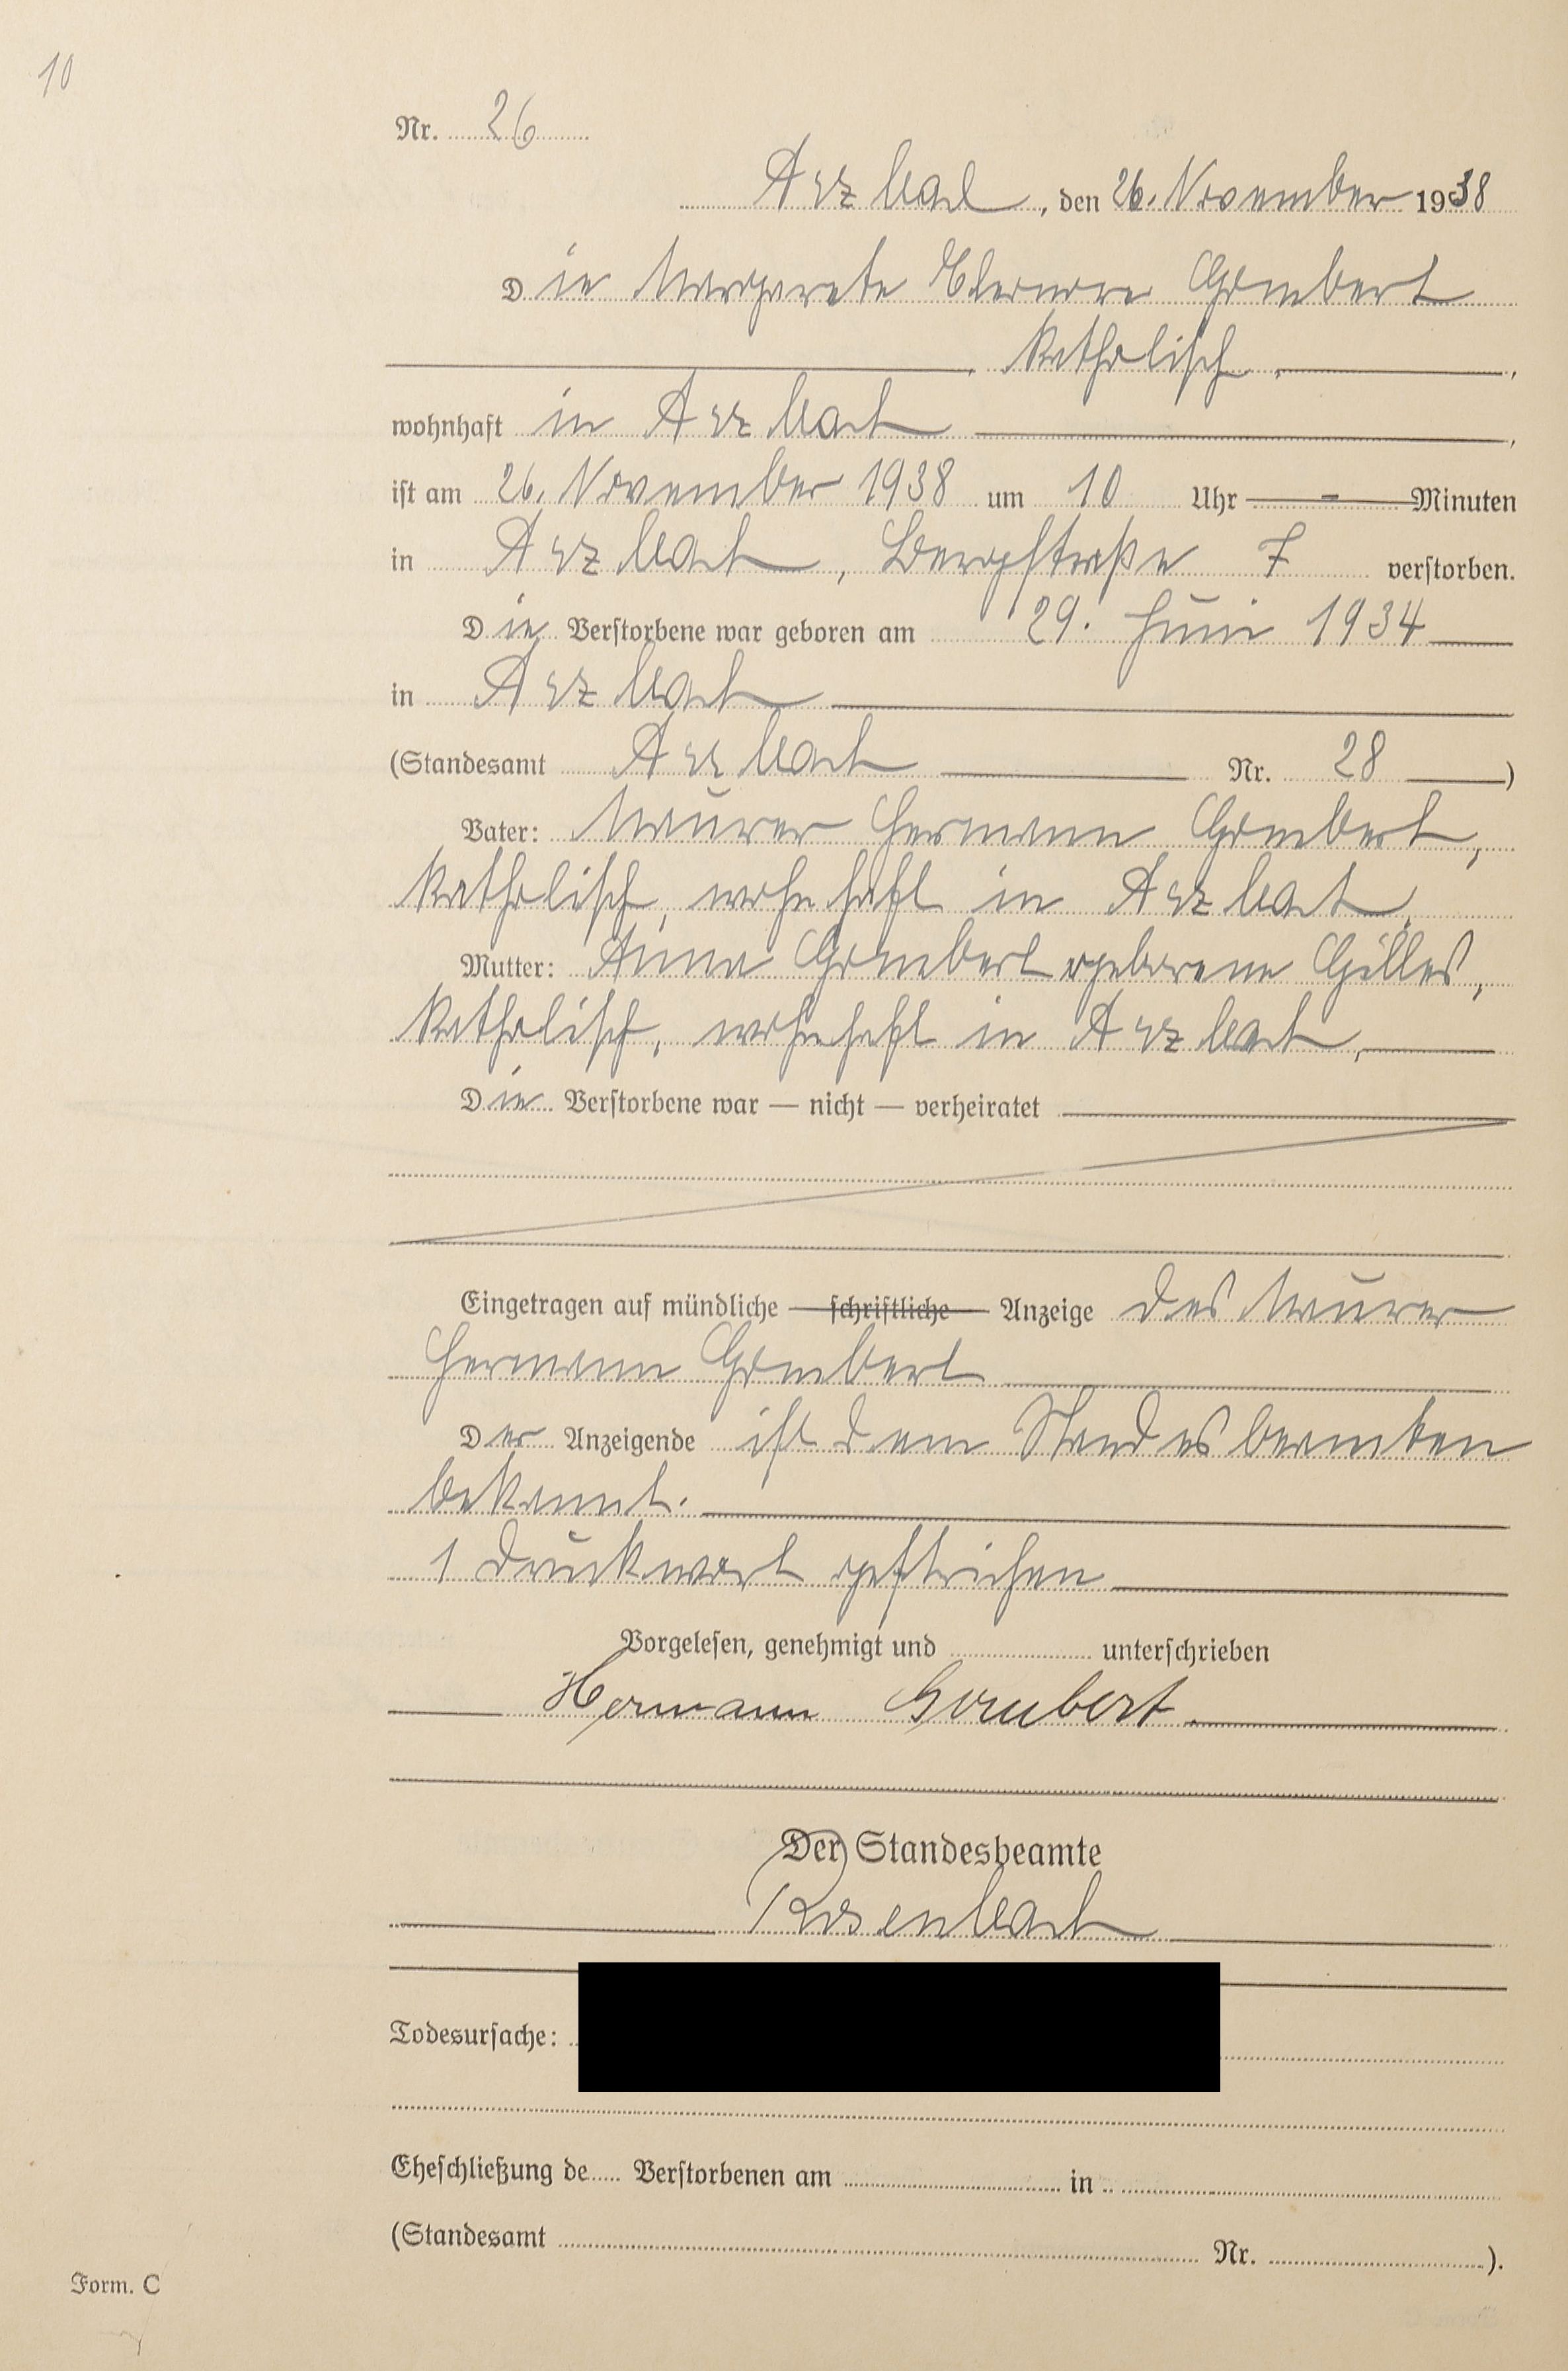 10
Nr. 26
Arzbach, den 26. November 1938
Die Margarete Eleonore Gombert
katholisch,
wohnhaft in Arzbach,
ist am 26. November 1938 um 10 Uhr - Minuten
in Arzbach, Bergstraße 7 verstorben.
Die Verstorbene war geboren am 29. Juni 1934
in Arzbach
(Standesamt Arzbach Nr. 28)
Vater: Maurer Hermann Gombert,
katholisch, wohnhaft in Arzbach,
Mutter: Anna Gombert geborene Gilles,
katholisch, wohnhaft in Arzbach,
Die Verstorbene war — nicht — verheiratet
Eingetragen auf mündliche — schriftliche — Anzeige des Maurer
Hermann Gombert
Der Anzeigende ist dem Standesbeamten
bekannt.
1 Druckwort gestrichen
Vorgelesen, genehmigt und unterschrieben
Hermann Gombert.
Der Standesbeamte
Rosenbach
Todesursache:
Eheschließung de Verstorbenen am in
(Standesamt Nr. ).
Form. C